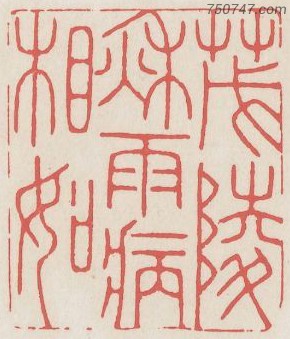 750747.com
茂陵
秌雨病
相如